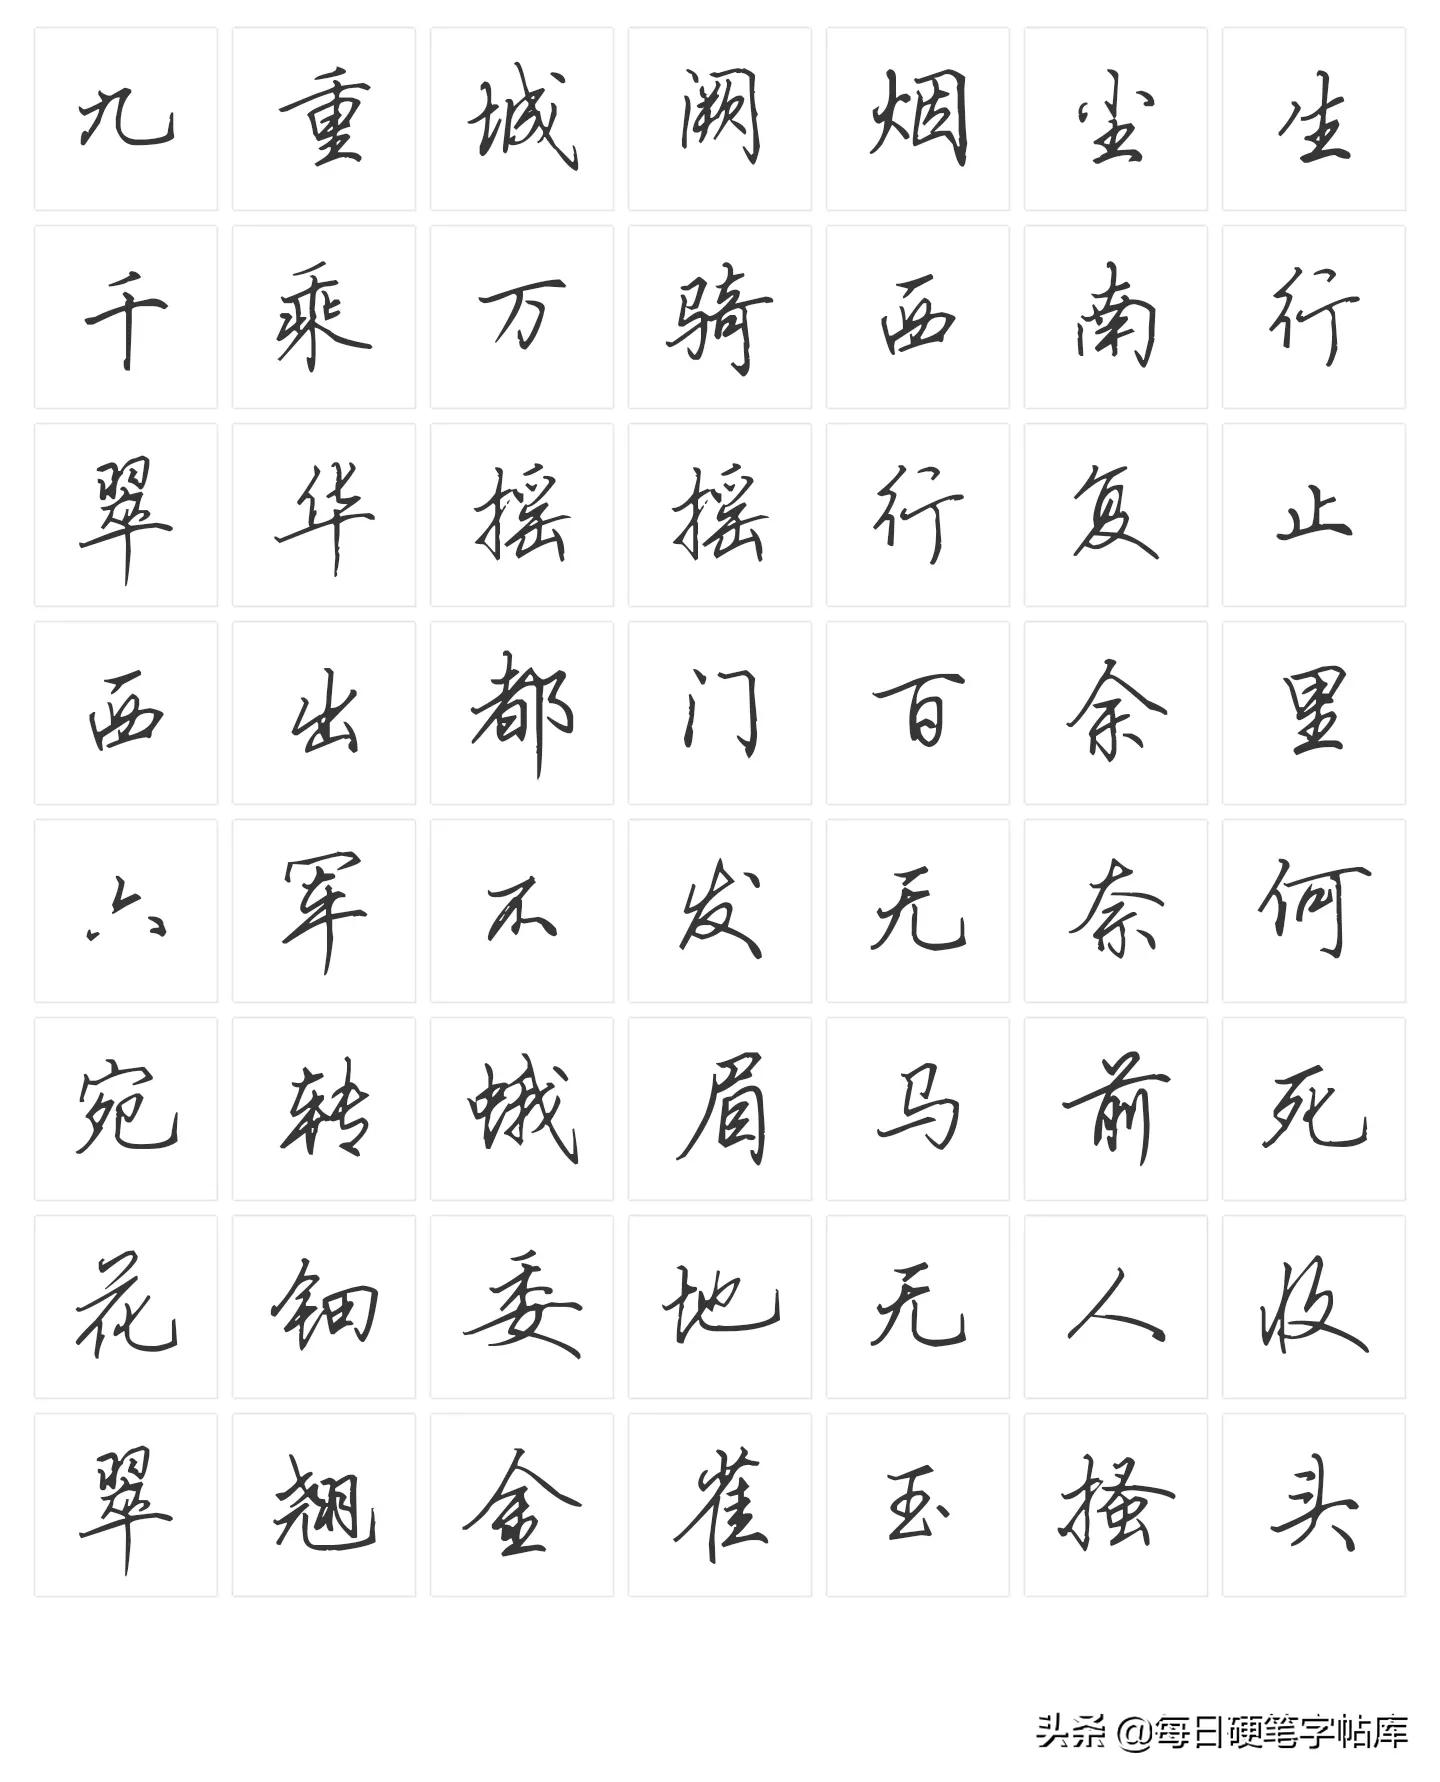 九重城阙烟尘生
千乘万骑西南行
翠华摇摇行复止
西出都门百余里
六军不发无奈何
宛转蛾眉马前死
花钿委地无人收
翠翘金雀玉搔头
头条 @每日硬笔字帖库